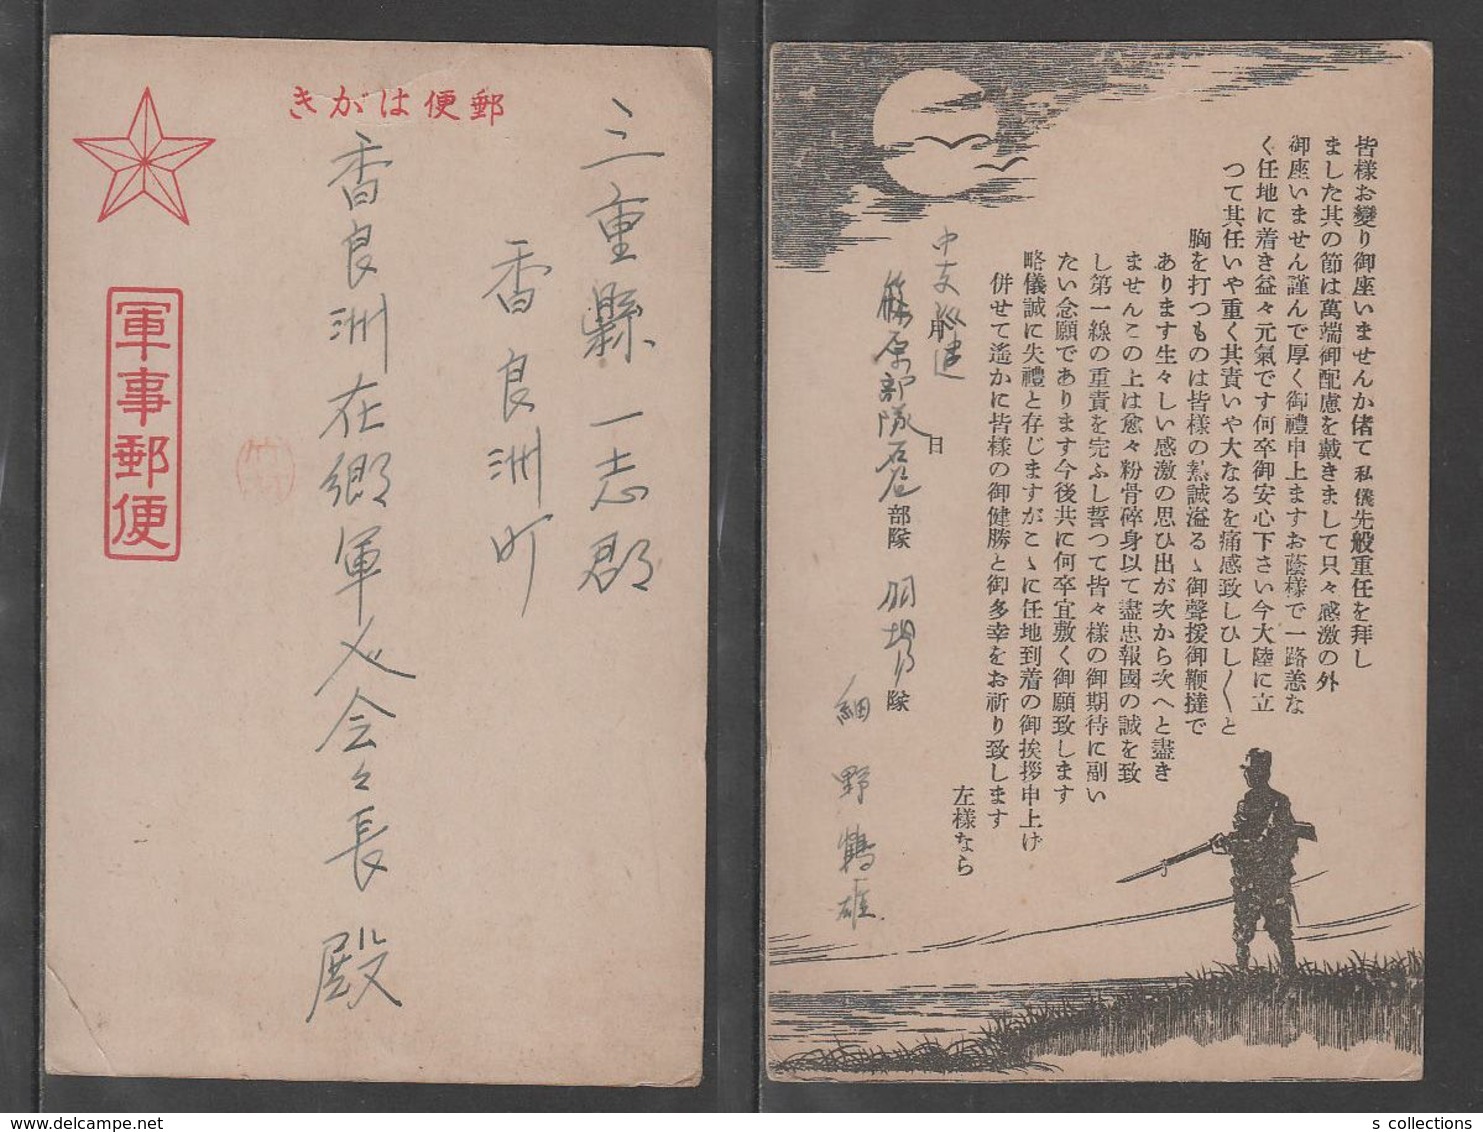 郵便はがき
軍事郵便
三重縣一志郡
香良洲町
香良洲在郷軍人会々長殿
皆樣お變り御座いませんか偖て私儀先般重任を拜し
ました其の節は萬端御配慮を戴きまして只々感激の外
御座いません謹んで厚く御禮申上ますお蔭樣で一路恙な
く任地に着き益々元氣です何卒御安心下さい今大陸に立
つて其任いや重く其責いや大なるを痛感致しひし〳〵と
胸を打つものは皆樣の熱誠溢るゝ御聲援御鞭撻で
あります生々しい感激の思ひ出が次から次へと盡き
ませんこの上は愈々粉骨碎身以て盡忠報國の誠を致
し第一線の重責を完ふし誓つて皆々樣の御期待に副い
たい念願であります今後共に何卒宜敷く御願致します
略儀誠に失禮と存じますがこゝに任地到着の御挨拶申上げ
併せて遙かに皆樣の御健勝と御多幸をお祈り致します
左樣なら
月 日
中支派遣
藤原部隊石�部隊 羽場隊
細野鶴雄
s collections